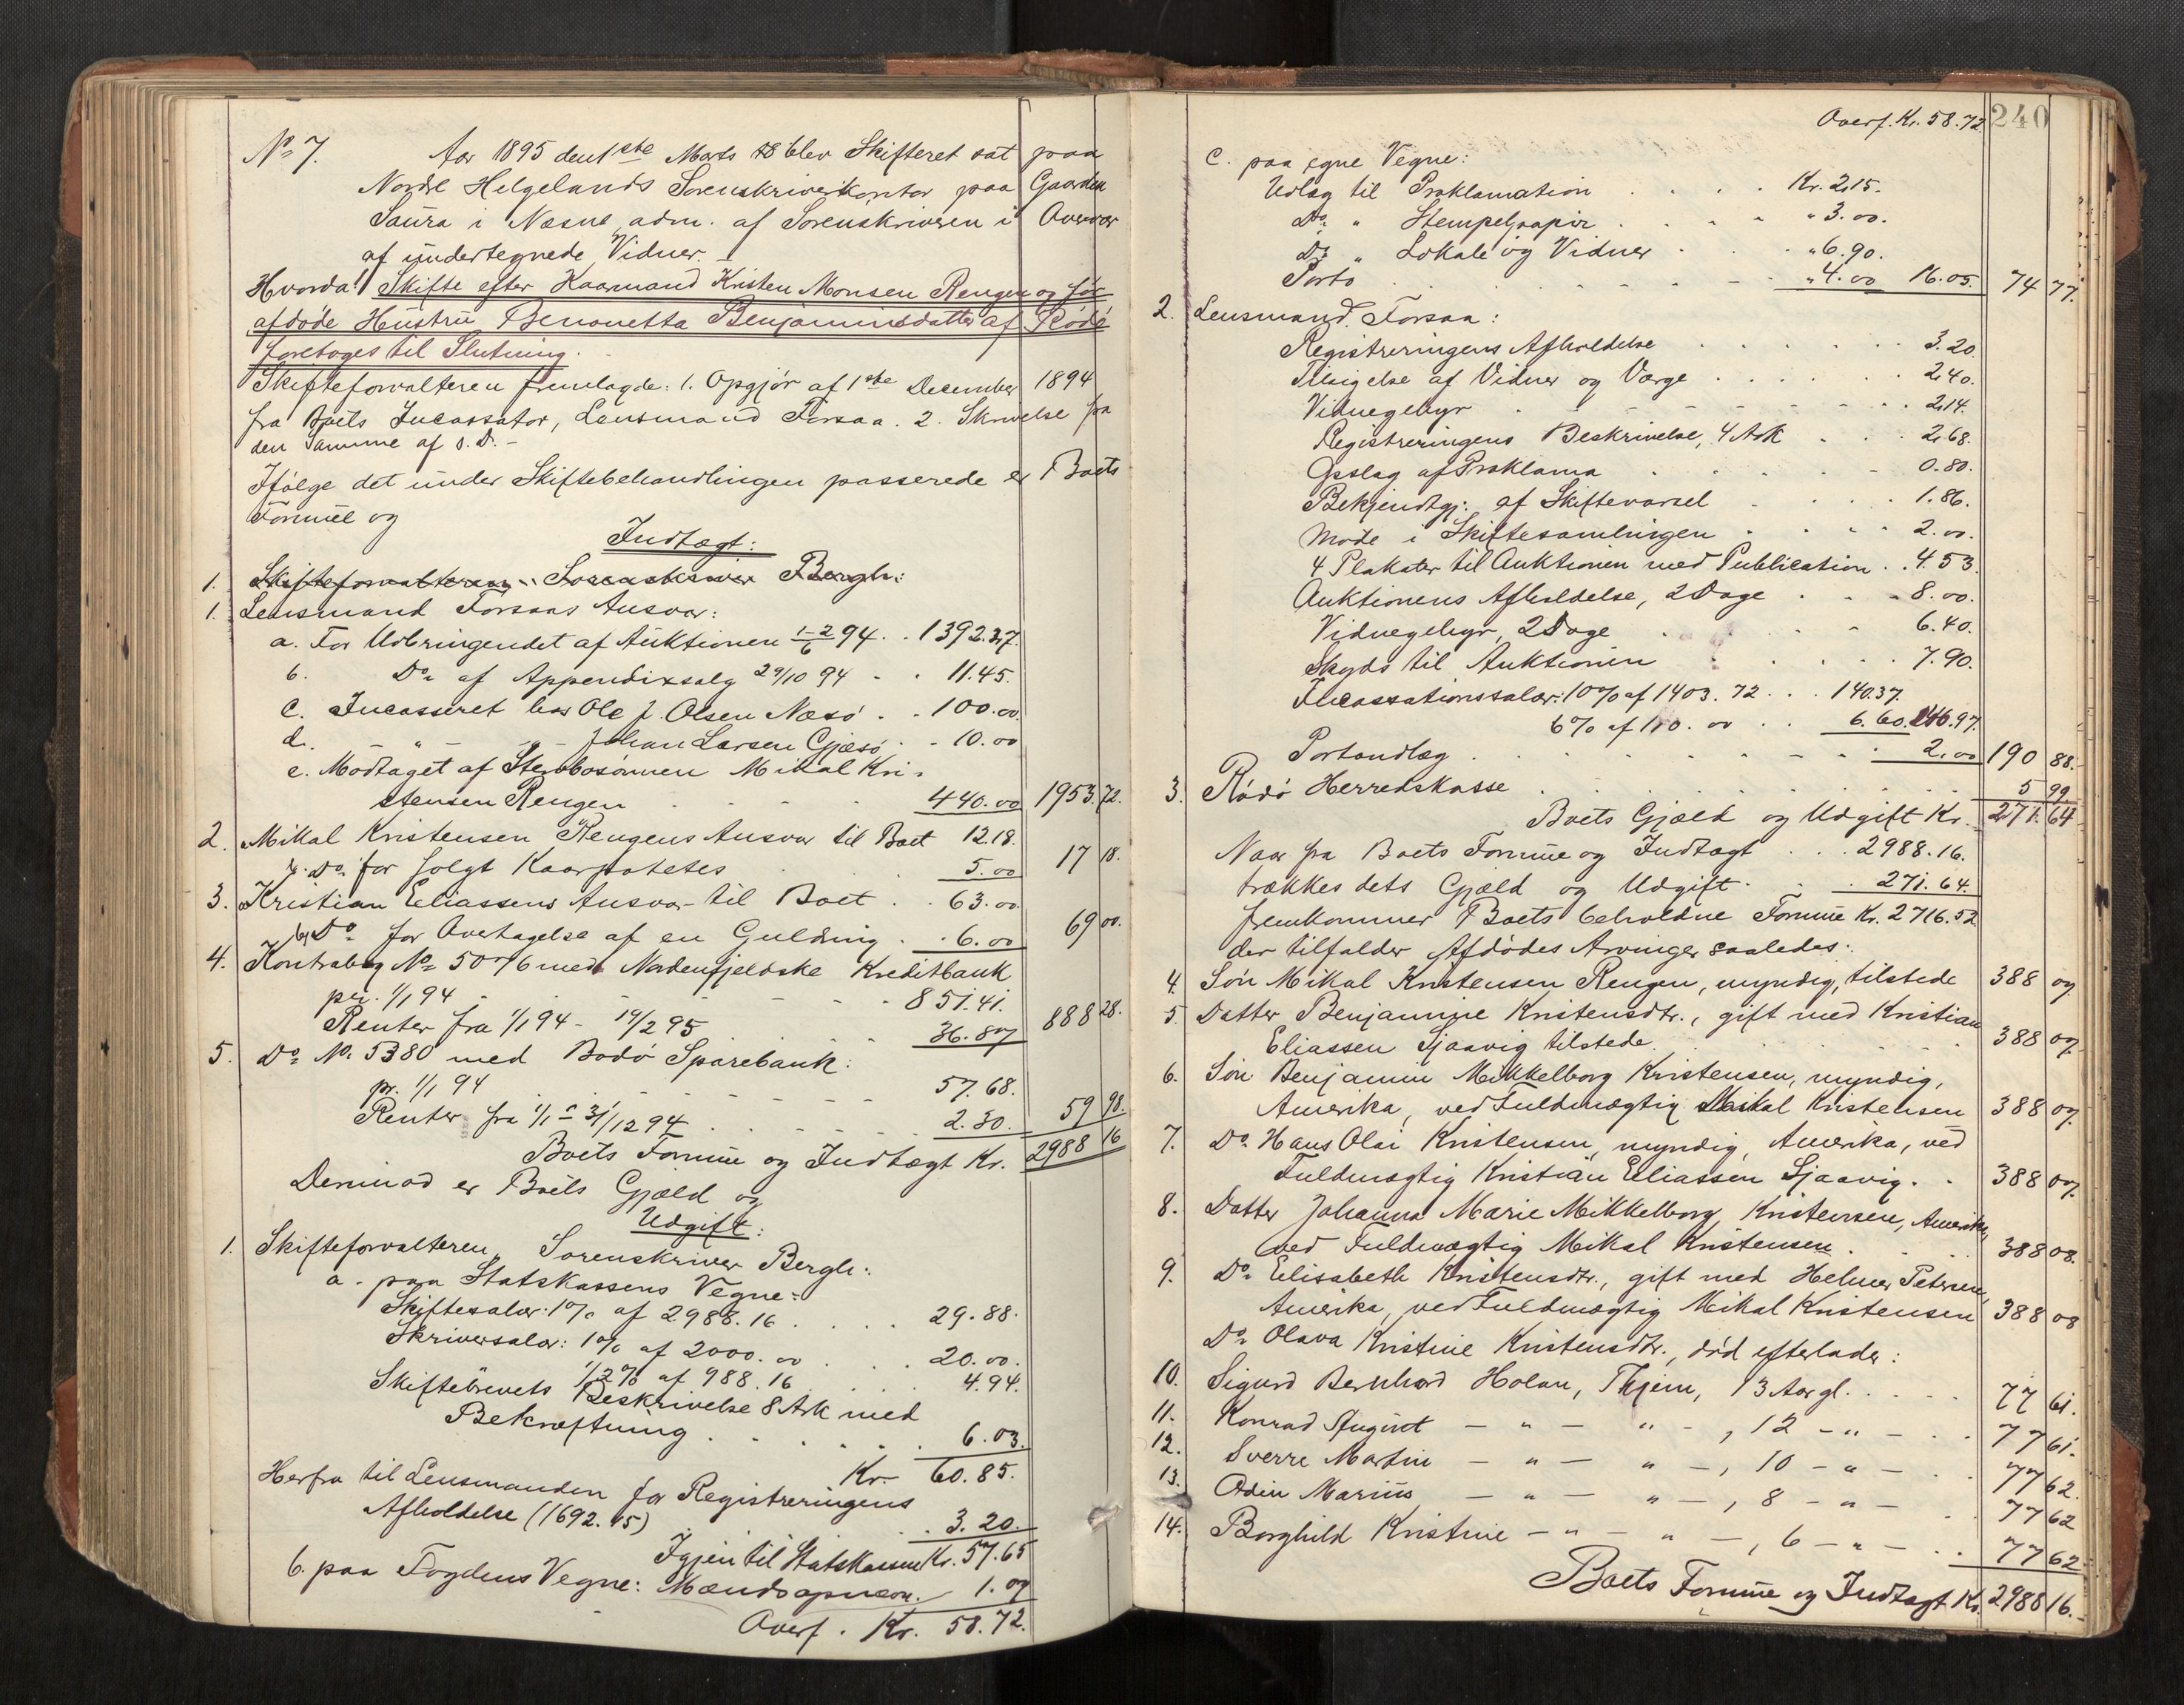 No 7. Aar 1895 den 1ste Marts blev Skifteret sat paa
Nordre Helgelands Sorenskriverkontor paa Gaarden
Saura i Næsne adm. af Sorenskriveren i Overvær
af undertegnede Vidner. –
Hvorda: Skifte efter Kaarmand Kristen Monsen Rengen og før
afdøde Hustru Benonetta Benjaminsdatter af Rødø
foretoges til Slutning.
Skifteforvalteren fremlagde: 1. Opgjør af 1ste December 1894
fra Boets Incassator, Lensmand Forsaa. 2. Skrivelse fra
den Samme af s. D. –
Ifølge det under Skiftebehandlingen passerede er Boets
Formue og
Indtægt:
1. Skifteforvalteren, Sorenskriver Bergh:
1. Lensmand Forsaas Ansvar:
a. For Udbringendet af Auktionen 1-2/6 94 . . 1392.27.
b. Do af Appendixsalg 29/10 94 . . 11.45.
c. Incasseret hos Ole J. Olsen Næsø . . 100.00.
d. – " – " – Johan Larsen Gjæsø . . 10.00
e. Modtaget af Sterbosønnen Mikal Kri-
stensen Rengen 440.00 1953.72.
2. Mikal Kristensen Rengens Ansvar til Boet 12.18.
Do for solgt Kaarpotetes 5.00 17 18.
3. Kristian Eliassens Ansvar til Boet . . 63.00.
Do for Overtagelse af en Guldring . . 6.00 69 00.
4. Kontrabog No 5076 med Nordenfjeldske Kreditbank
pr. 1/1 94 851.41.
Renter fra 1/1 94 – 19/2 95 36.87 888 28.
5. Do No. 5380 med Bodø Sparebank:
pr. 1/1 94 57.68.
Renter fra 1/1 – 31/12 94 2.30. 59 98.
Boets Formue og Indtægt Kr. 2988 16
Derimod er Boets Gjæld og
Udgift:
1. Skifteforvalteren, Sorenskriver Bergh:
a. paa Statskassens Vegne:
Skiftesalær: 1% af 2988.16 . . . . 29.88.
Skriversalær: 1% af 2000.00 . . . 20.00.
1/2% af 988.16 . . . . 4.94.
Skiftebrevets Beskrivelse 8 Ark med
Bekræftning . . . . . . 6.03.
Kr. 60.85.
Herfra til Lensmanden for Registreringens
Afholdelse (1692.15) . . 3.20.
Igjen til Statskassen Kr. 57.65
b. paa Fogdens Vegne: Mandsopnævn. 1.07
Overf. Kr. 58.72.
Overf. Kr. 58.72 240
c. paa egne Vegne:
Udlæg til Proklamation . . . . Kr. 2.15.
Do " Stempelpapir . . . . " 3.00.
Do " Lokale og Vidner . . . " 6.90.
Porto . . . . " 4.00 16.05. 74 77.
2. Lensmand Forsaa:
Registreringens Afholdelse . . . . . . 3.20.
Tilsigelse af Vidner og Værge . . . . . 2.40.
Vidnegebyr . . . . . . 2.14.
Registreringens Beskrivelse, 4 Ark . . . 2.68.
Opslag af Proklama . . . . . 0.80.
Bekjendtgj: af Skiftevarsel . . . . 1.86.
Møde i Skiftesamlingen . . . . 2.00.
4 Plakater til Auktionen med Publication . . 4.53.
Auktionens Afholdelse, 2 Dage . . . 8.00.
Vidnegebyr, 2 Dage . . . . 6.40.
Skyds til Auktionen . . . . . 7.90.
Incassationssalær: 10% af 1403.72 . . . 140.37.
6% af 110.00 . . 6.60. 146.97.
Portoudlæg . . . . . . . 2.00 190 88.
3. Rødø Herredskasse . . . . . . . 5 99
Boets Gjæld og Udgift Kr. 271.64
Naar fra Boets Formue og Indtægt . . . 2988.16.
trækkes dets Gjæld og Udgift . . . 271.64.
fremkommer Boets beholdne Formue Kr. 2716.52
der tilfalder Afdødes Arvinger saaledes:
4. Søn Mikal Kristensen Rengen, myndig, tilstede 388 07.
5. Datter Benjamine Kristensdtr., gift med Kristian
Eliassen Sjaavig tilstede . . . . 388 07.
6. Søn Benjamin Mikkelborg Kristensen, myndig,
Amerika, ved Fuldmægtig Mikal Kristensen 388 07.
7. Do Hans Olai Kristensen, myndig, Amerika, ved
Fuldmægtig Kristian Eliassen Sjaavig . . 388 07.
8. Datter Johanna Marie Mikkelborg Kristensen, Amerika,
ved Fuldmægtig Mikal Kristensen . . . 388 08.
9. Do Elisabeth Kristensdtr., gift med Helmer Petersen,
Amerika, ved Fuldmægtig Mikal Kristensen 388 08
Do Olava Kristine Kristensdtr., død efterlader:
10. Sigurd Bernhard Holan, Thjem, 13 Aar gl. . . . 77 61.
11. Konrad August – " – " – , 12 – " – . . 77 61.
12. Sverre Martin – " – " – , 10 – " – . . 77 62.
13. Odin Marius – " – " – , 8 – " – . . 77 62
14. Borghild Kristine – " – " – , 6 – " – . . 77 62
Boets Formue og Indtægt Kr. 2988 16.